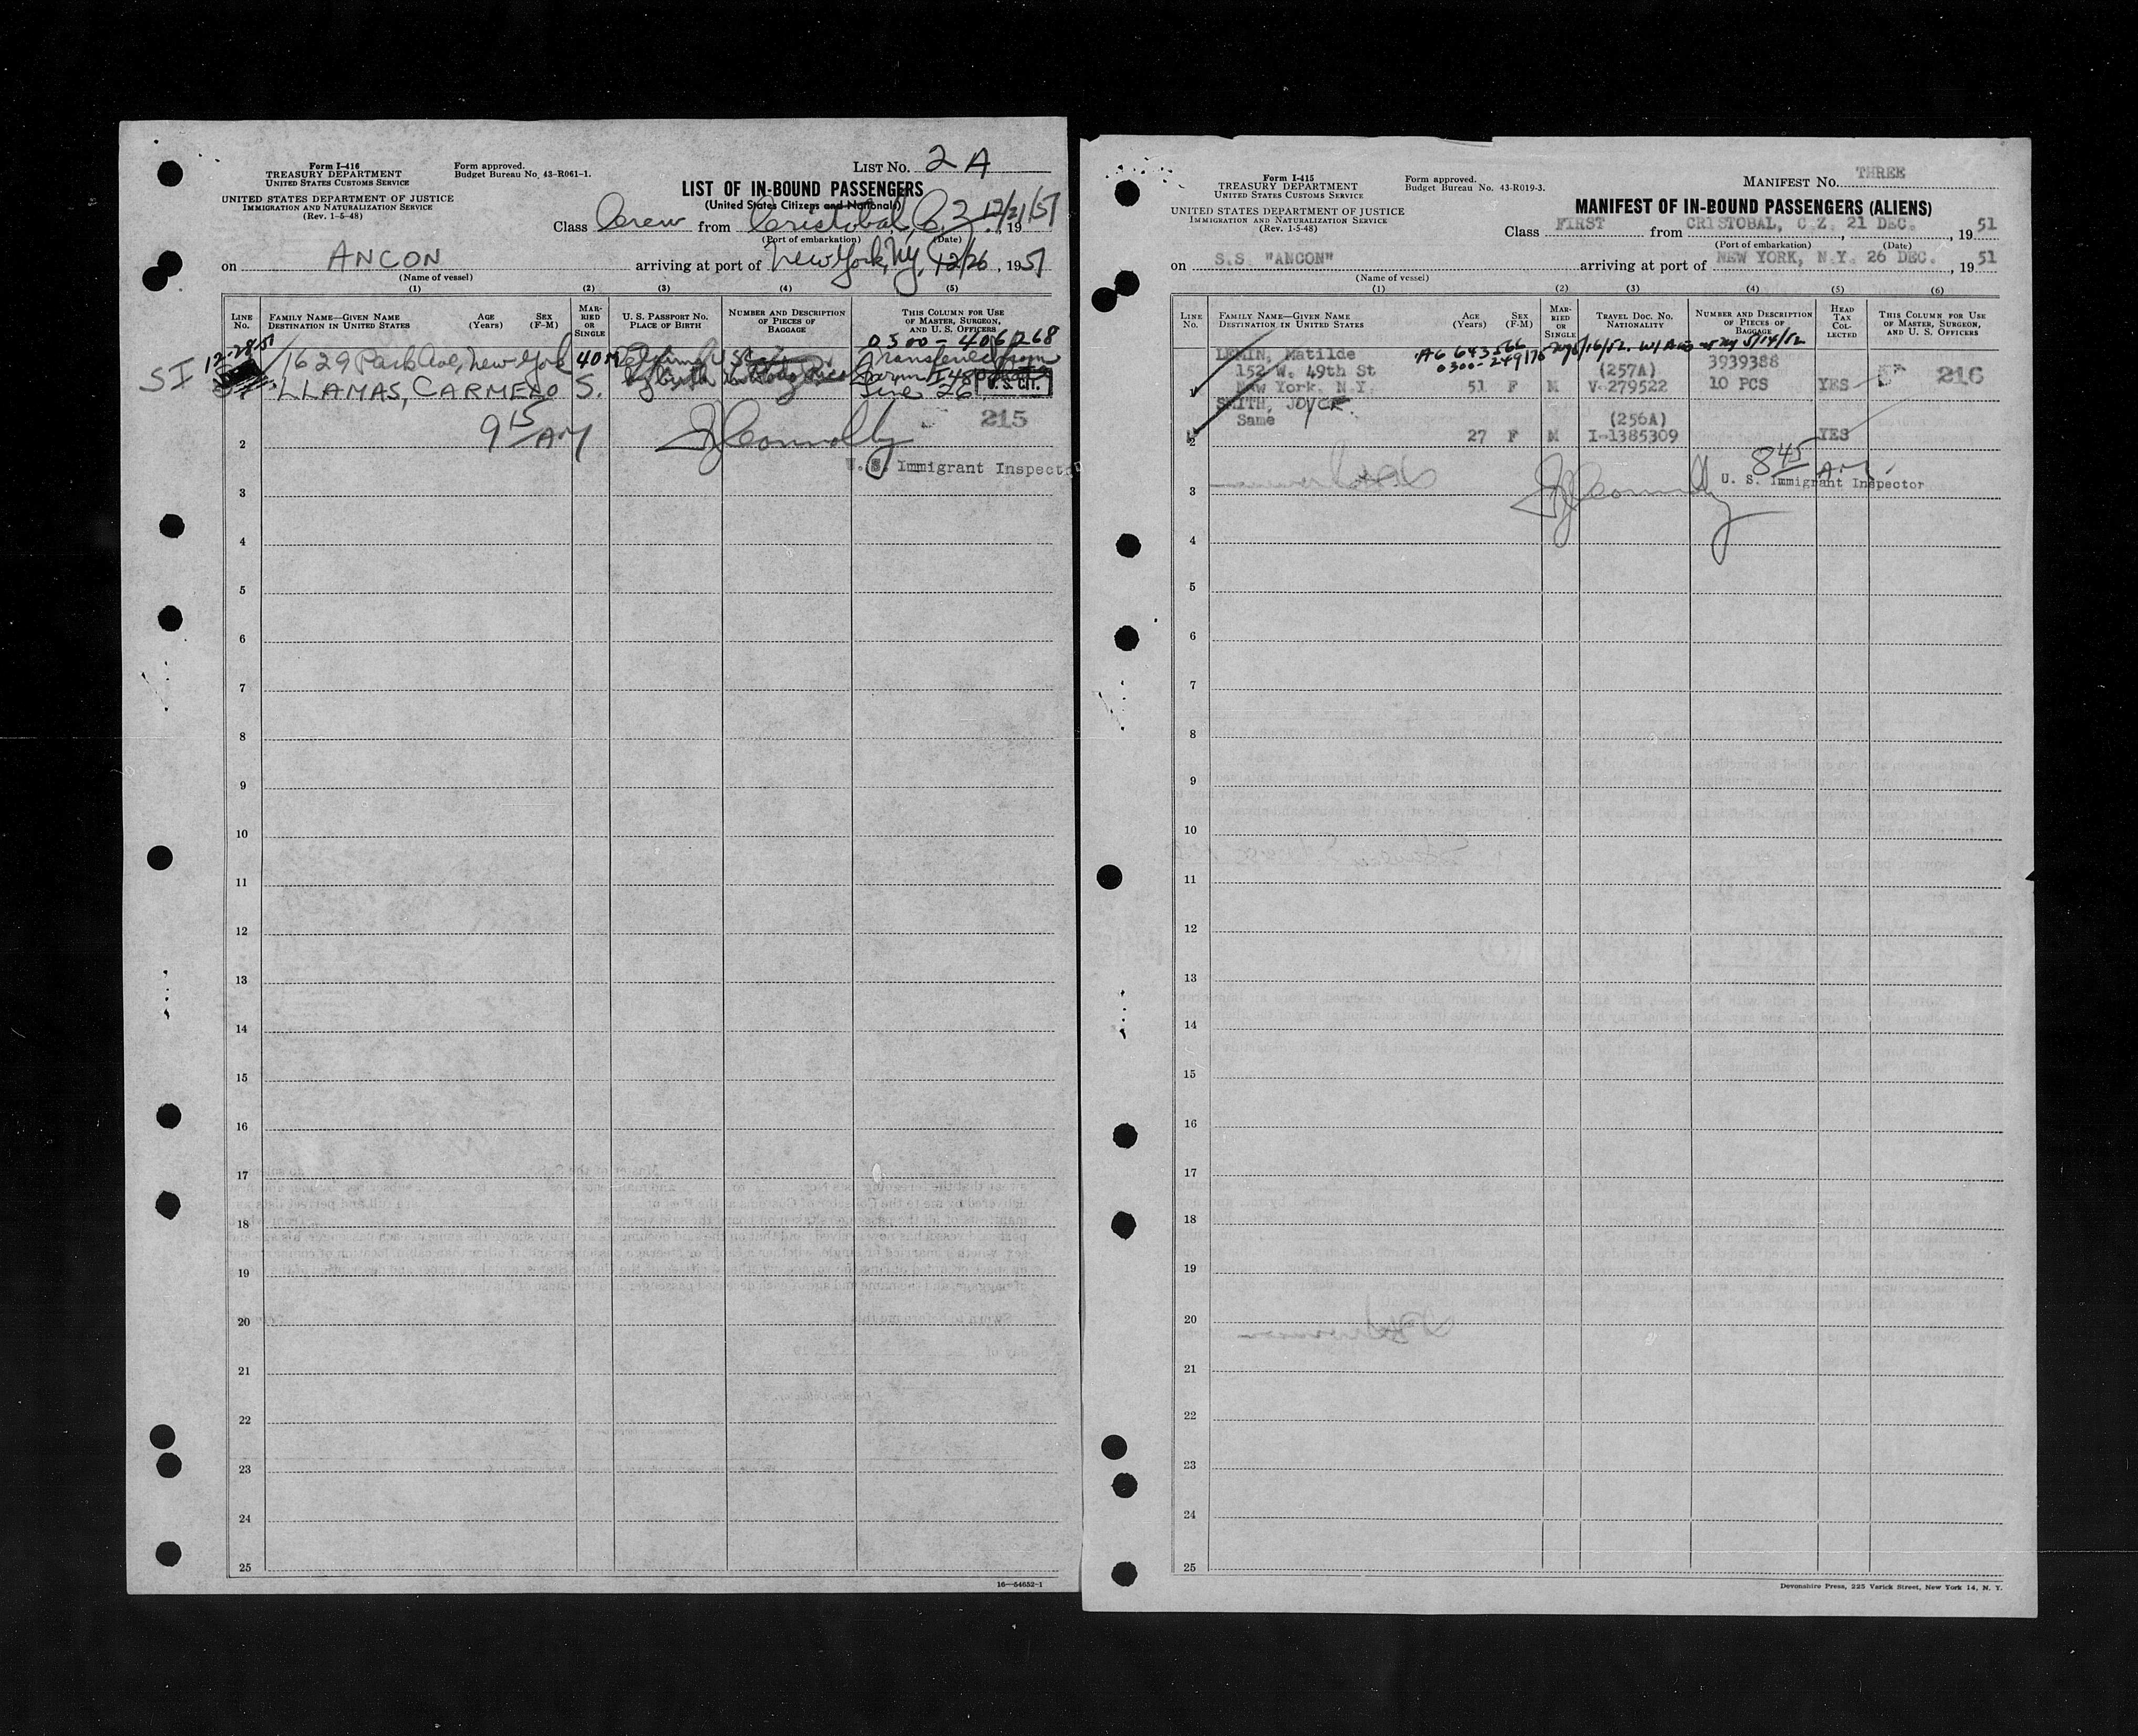 Form I-416
TREASURY DEPARTMENT
UNITED STATES CUSTOMS SERVICE
UNITED STATES DEPARTMENT OF JUSTICE
IMMIGRATION AND NATURALIZATION SERVICE
(Rev. 1-5-48)
Form approved.
Budget Bureau No. 43-R061-1.
LIST NO. 2 A
LIST OF IN-BOUND PASSENGERS
(United States Citizens and Nationals)
Class Crew from Cristobal, C.Z. 12/21/51, 19
(Port of embarkation) (Date)
on ANCON arriving at port of New York, N.Y. 12/26, 1951
(Name of vessel)
(1) (2) (3) (4) (5)
LINE No. FAMILY NAME—GIVEN NAME DESTINATION IN UNITED STATES AGE (Years) SEX (F-M) MARRIED OR SINGLE U. S. PASSPORT NO. PLACE OF BIRTH NUMBER AND DESCRIPTION OF PIECES OF BAGGAGE THIS COLUMN FOR USE OF MASTER, SURGEON, AND U. S. OFFICERS
0300-406268
12-28-51
SI
1629 Park Ave, New York 40 M
Transferred from
LLAMAS, CARMELO S.
Form I-480
Line 26 U.S. CIT.
9 15 AM
215
2
U. S. Immigrant Inspector
3
4
5
6
7
8
9
10
11
12
13
14
15
16
17
18
19
20
21
22
23
24
25
16—54652-1
Form I-415
TREASURY DEPARTMENT
UNITED STATES CUSTOMS SERVICE
UNITED STATES DEPARTMENT OF JUSTICE
IMMIGRATION AND NATURALIZATION SERVICE
(Rev. 1-5-48)
Form approved.
Budget Bureau No. 43-R019-3.
MANIFEST NO. THREE
MANIFEST OF IN-BOUND PASSENGERS (ALIENS)
Class FIRST from CRISTOBAL, C.Z. 21 DEC., 1951
(Port of embarkation) (Date)
on S.S. "ANCON" arriving at port of NEW YORK, N.Y. 26 DEC., 1951
(Name of vessel)
(1) (2) (3) (4) (5) (6)
LINE No. FAMILY NAME—GIVEN NAME DESTINATION IN UNITED STATES AGE (Years) SEX (F-M) MARRIED OR SINGLE TRAVEL DOC. NO. NATIONALITY NUMBER AND DESCRIPTION OF PIECES OF BAGGAGE HEAD TAX COLLECTED THIS COLUMN FOR USE OF MASTER, SURGEON, AND U. S. OFFICERS
A6 643 566
0300-249178
LEMIN, Matilde
152 W. 49th St (257A) 3939388
1 New York, N.Y. 51 F M V-279522 10 PCS YES 216
SMITH, JOYCE
Same (256A)
2 27 F M I-1385309 YES
8 45 AM
U. S. Immigrant Inspector
3
4
5
6
7
8
9
10
11
12
13
14
15
16
17
18
19
20
21
22
23
24
25
Devonshire Press, 225 Varick Street, New York 14, N. Y.